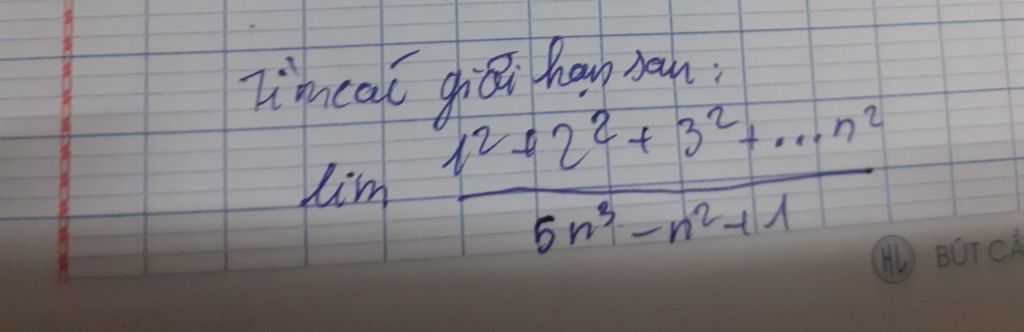 Tìm các giới hạn sau:
lim \frac{1² + 2² + 3² + ... n²}{5n³ - n² + 1}
HL BÚT CẢ